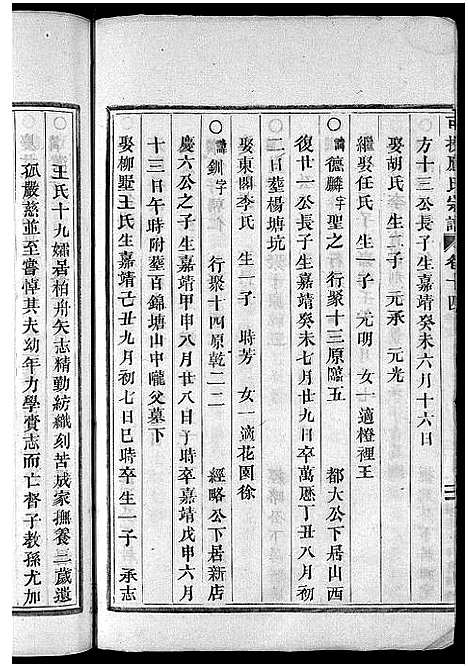 可投應氏宗譜 卷十四
方十三公長子生嘉靖癸未六月十六日
娶胡氏 生二子 元承 元光
繼娶任氏 生一子 元明 女一適橙里王
〇諱德麟字聖之 行聚十三原臨五 都大公下居山西
復廿一公長子生嘉靖癸未七月廿九日卒萬厯丁丑八月
二日塟楊塘坑
娶東閣李氏 生一子 時芳 女一適花園徐
〇諱釧字 行聚十四原乾二二 經略公下居新店
慶六公之子生嘉靖甲申八月廿八日子時卒嘉靖戊申六月
十三日午時附塟百錦塘山中隴父墓下
娶柳墅王氏生嘉靖己丑九月初七日巳時卒生一子 承志
王氏十九孀居柏舟矢志精勤紡織刻苦成家撫養三歲遺
孤嚴慈並至嘗悼其夫幼年力學賫志而亡督子教孫尤加